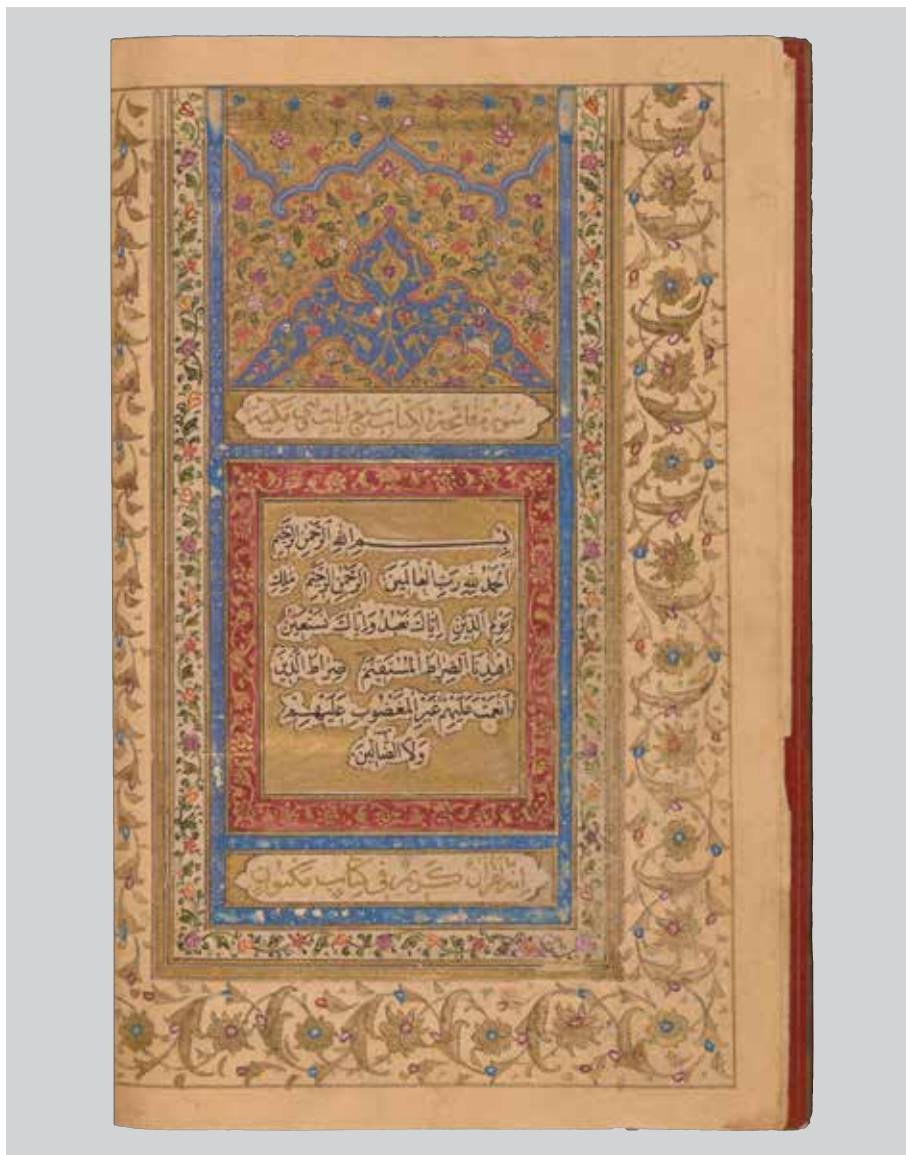 سورة فاتحة الكتاب سبع ايات هي مكية
بسم الله الرحمن الرحيم
الحمد لله رب العالمين الرحمن الرحيم ملك
يوم الدين اياك نعبد واياك نستعين
اهدنا الصراط المستقيم صراط الذين
انعمت عليهم غير المغضوب عليهم
ولا الضالين
انه لقرآن كريم في كتاب مكنون